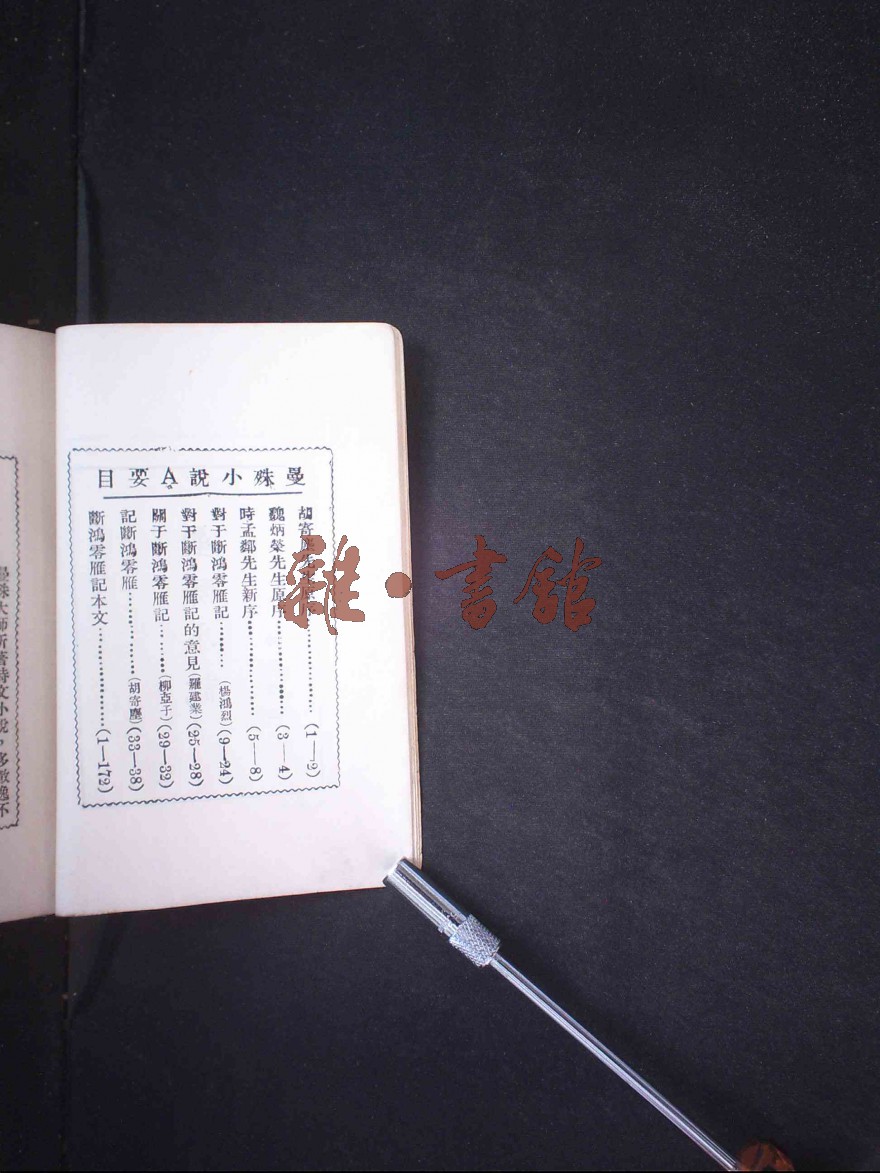 曼殊小說A要目
胡寄塵先生原序……………(1—2)
魏炳榮先生原序……………(3—4)
時孟鄰先生新序……………(5—8)
對于斷鴻零雁記………(楊鴻烈)(9—24)
對于斷鴻零雁記的意見(羅建業)(25—28)
關于斷鴻零雁記………(柳亞子)(29—32)
記斷鴻零雁……………(胡寄塵)(33—38)
斷鴻零雁記本文……………(1—172)
曼殊大師所著詩文小說,多散逸不
雜·書館